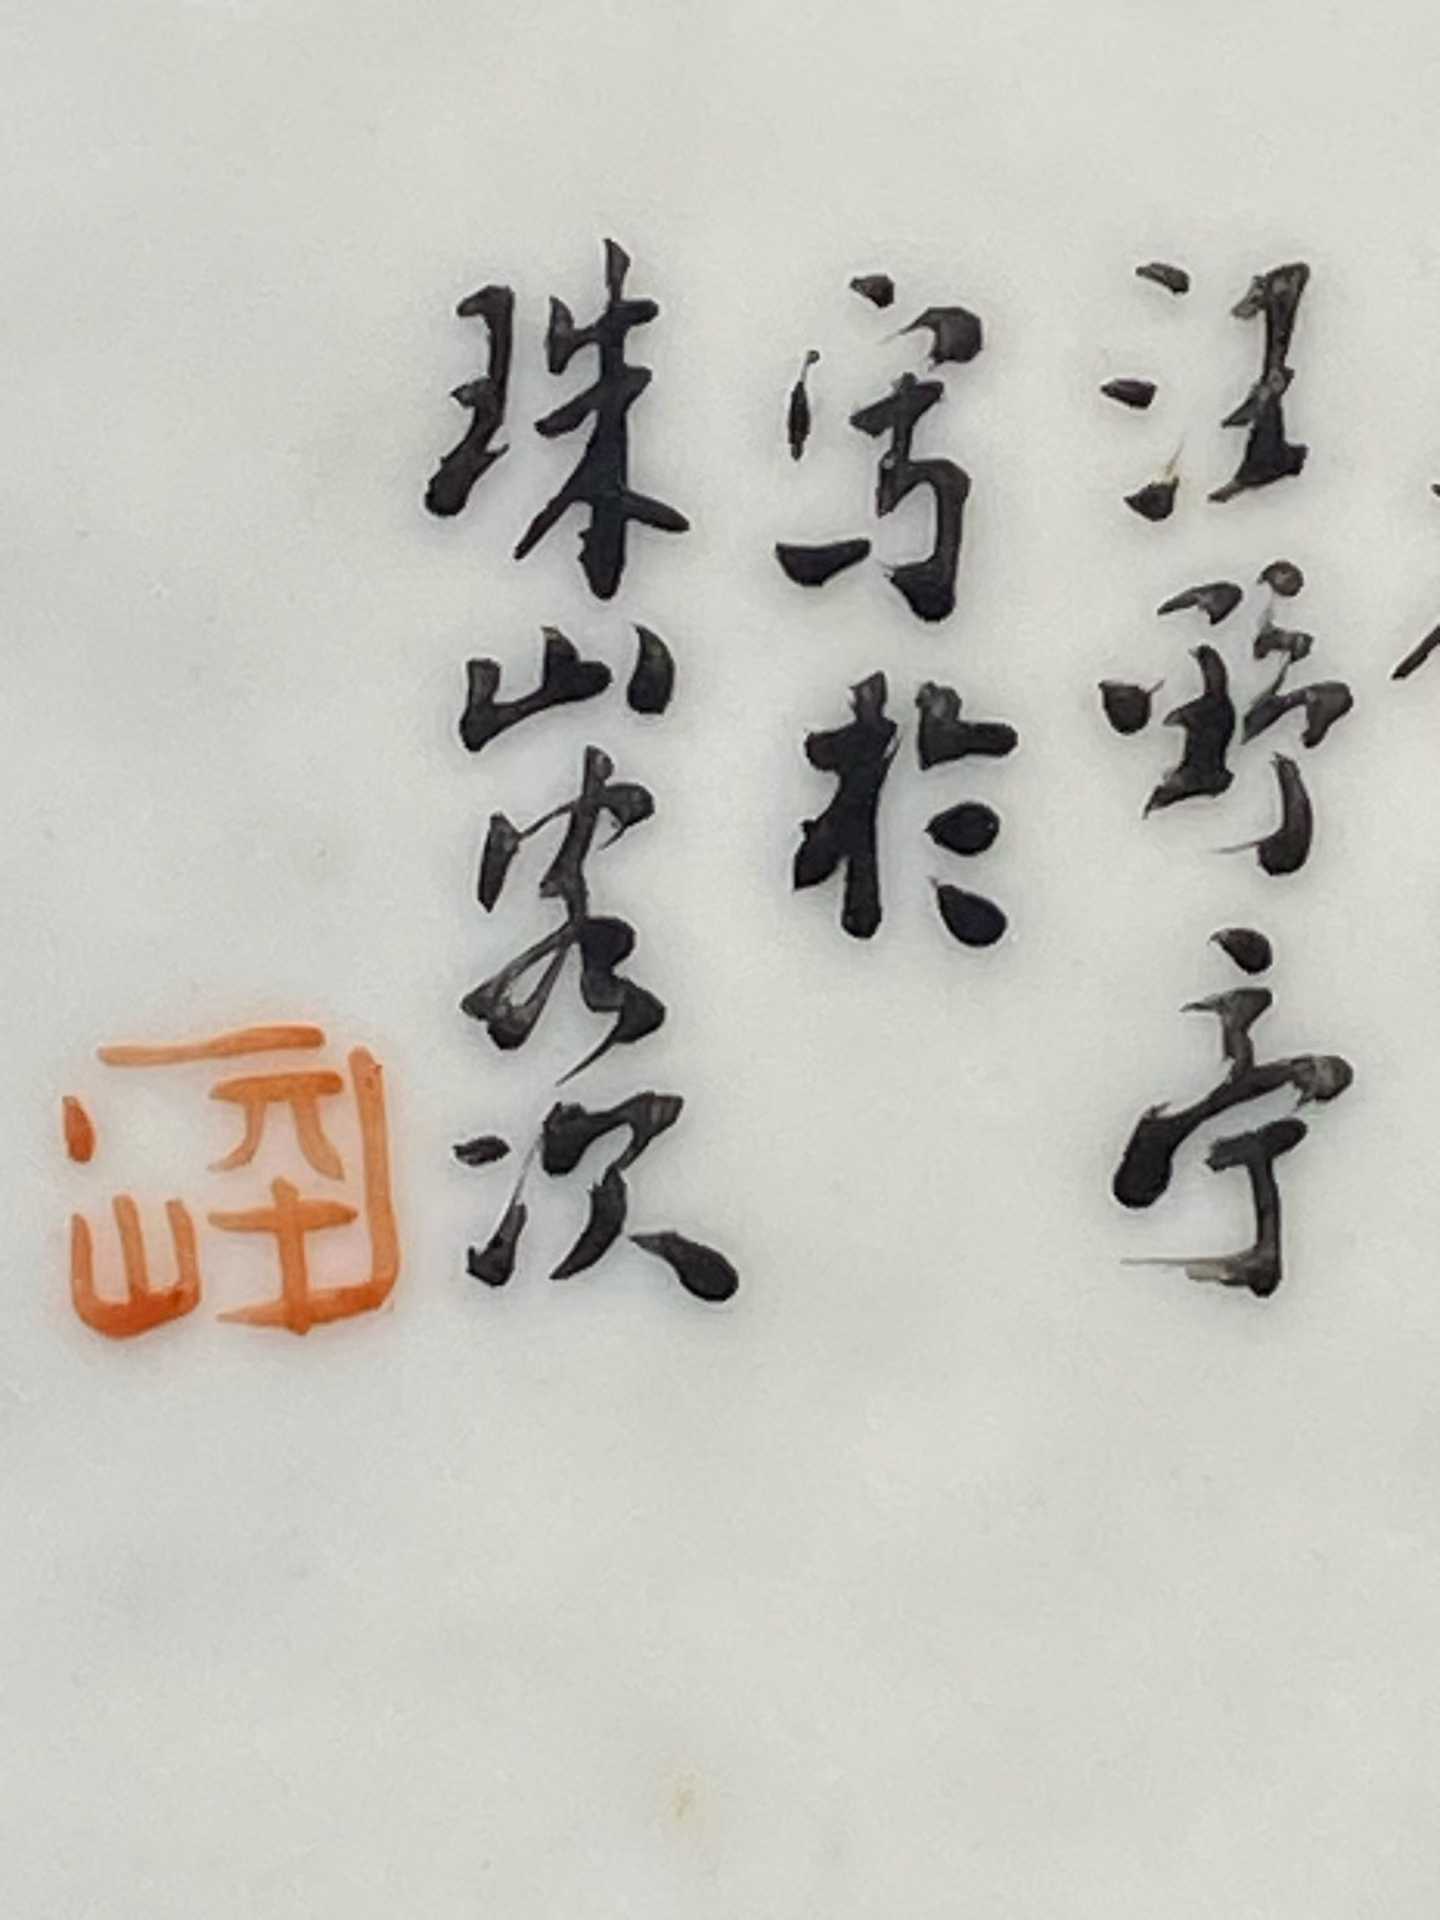 汪野亭
写於
珠山客次